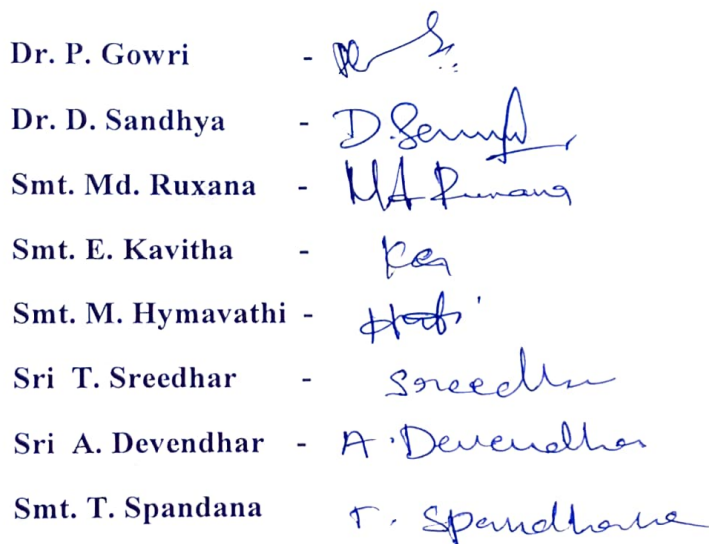 Dr. P. Gowri -
Dr. D. Sandhya - D.
Smt. Md. Ruxana - MA Ruxana
Smt. E. Kavitha -
Smt. M. Hymavathi -
Sri T. Sreedhar - Sreedhar
Sri A. Devendhar - A. Devendhar
Smt. T. Spandana T. Spandhana